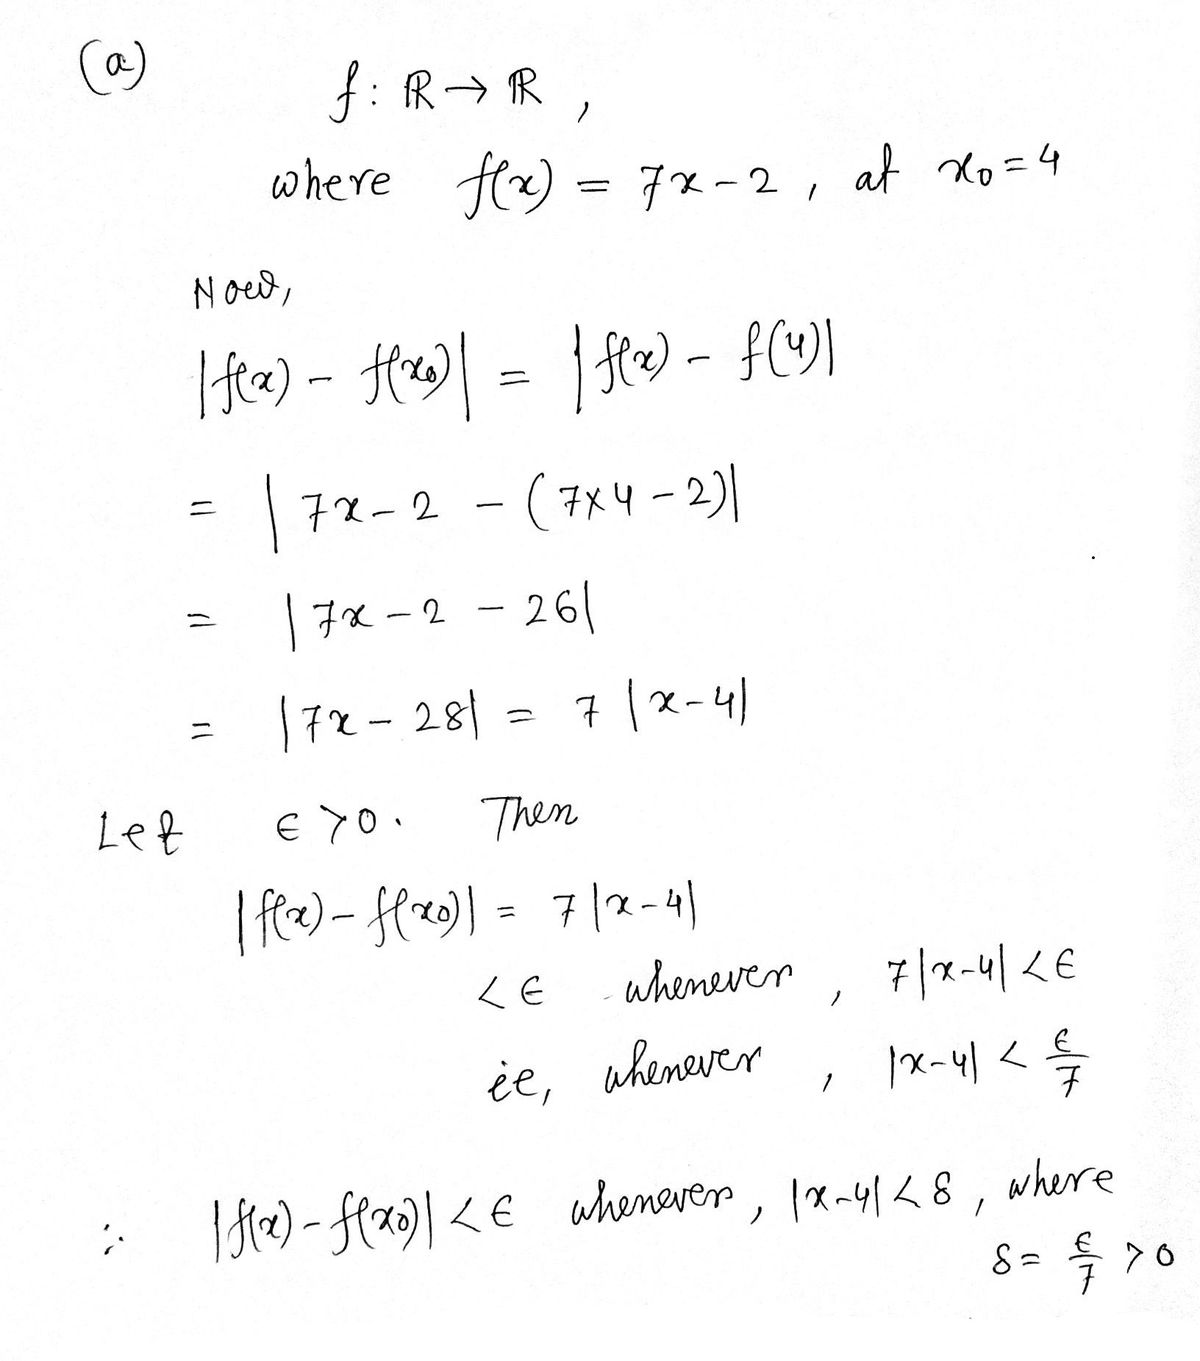 (a)
f : ℝ → ℝ ,
where f(x) = 7x - 2 , at x₀ = 4
Now,
|f(x) - f(x₀)| = |f(x) - f(4)|
= |7x - 2 - (7×4 - 2)|
= |7x - 2 - 26|
= |7x - 28| = 7 |x-4|
Let ϵ > 0. Then
|f(x) - f(x₀)| = 7 |x-4|
< ϵ whenever , 7|x-4| < ϵ
ie, whenever , |x-4| < ϵ/7
∴ |f(x) - f(x₀)| < ϵ whenever , |x-4| < δ , where
δ = ϵ/7 > 0